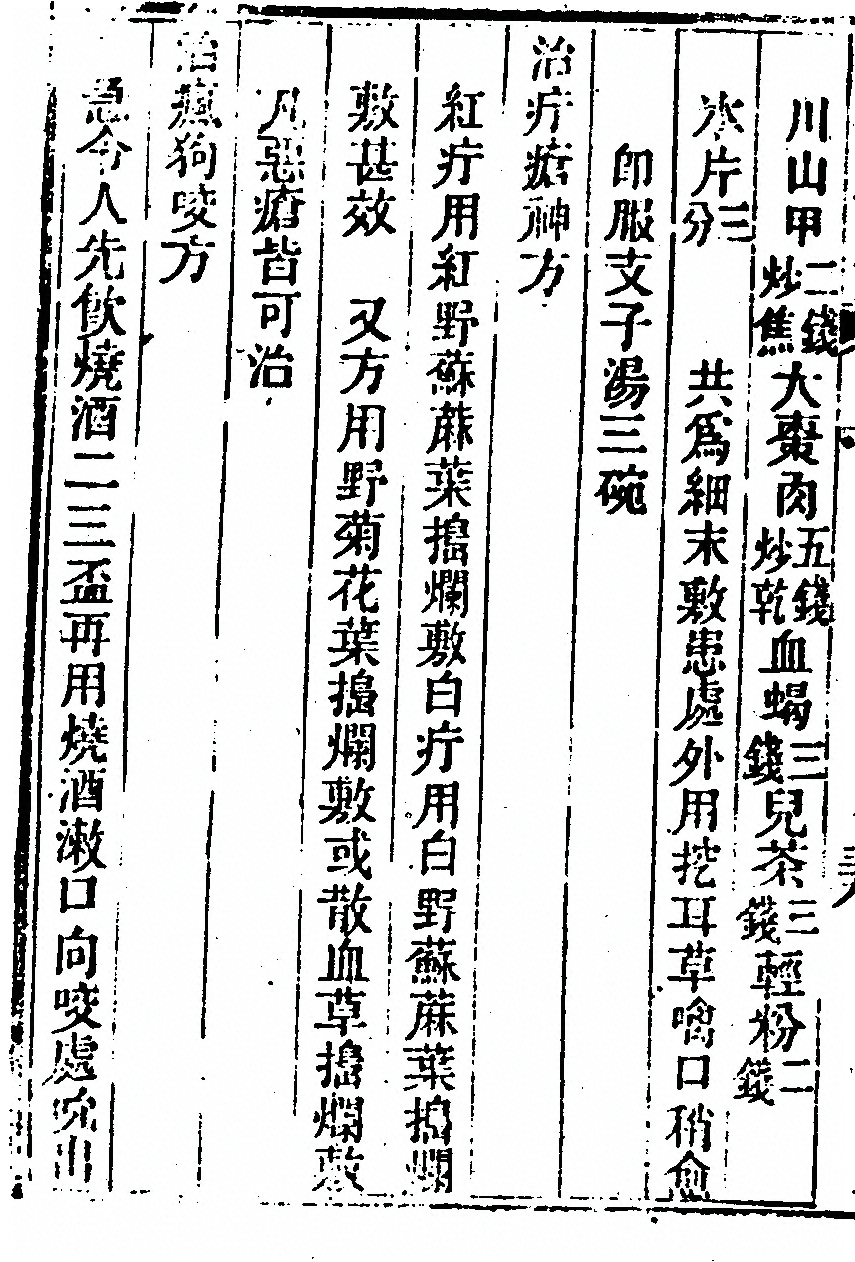 川山甲二錢炒焦大棗肉五錢炒乾血蝎三錢兒茶三錢輕粉二錢
氷片三分　共爲細末敷患處外用挖耳草噙口稍愈
即服支子湯三碗
治疔瘡神方
紅疔用紅野蘇蔴葉搗爛敷白疔用白野蘇蔴葉搗爛
敷甚效　又方用野菊花葉搗爛敷或散血草搗爛敷
凡惡瘡皆可治
治瘋狗咬方
急令人先飲燒酒二三盃再用燒酒漱口向咬處吮出